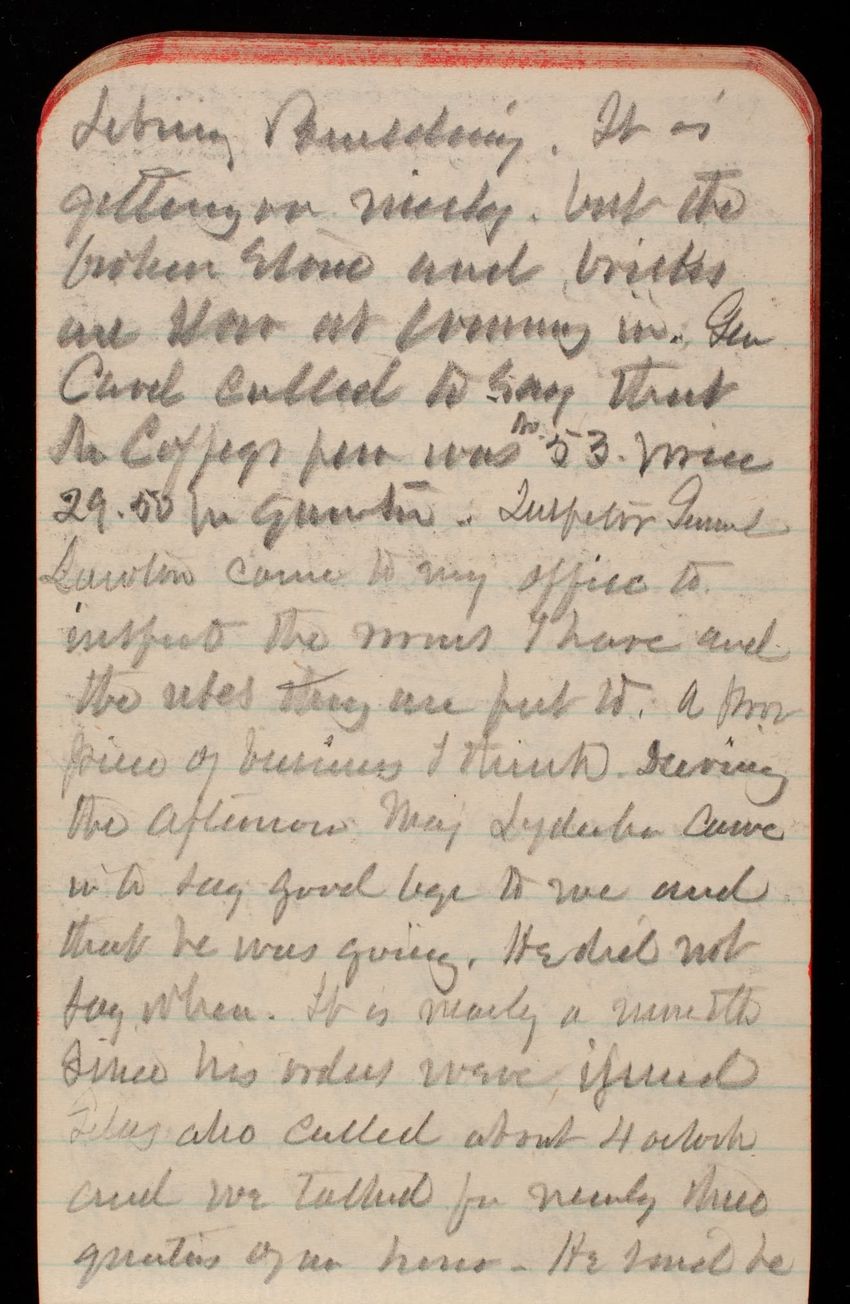 Library Building. It is
getting on nicely. but the
broken stone and bricks
are slow at coming in. Gen
Card called to say that
the Coffage pew was No. 53. price
29.50 per quarter. Inspector Genl
Lawton came to my office to
inspect the rooms I have and
the uses they are put to. A poor
piece of business I think. During
the afternoon Maj Lydecker came
in to say good bye to me and
that he was going. He did not
say when. It is nearly a month
since his orders were issued
also called about 4 oclock
and we talked for nearly three
quarters of an hour. He said he